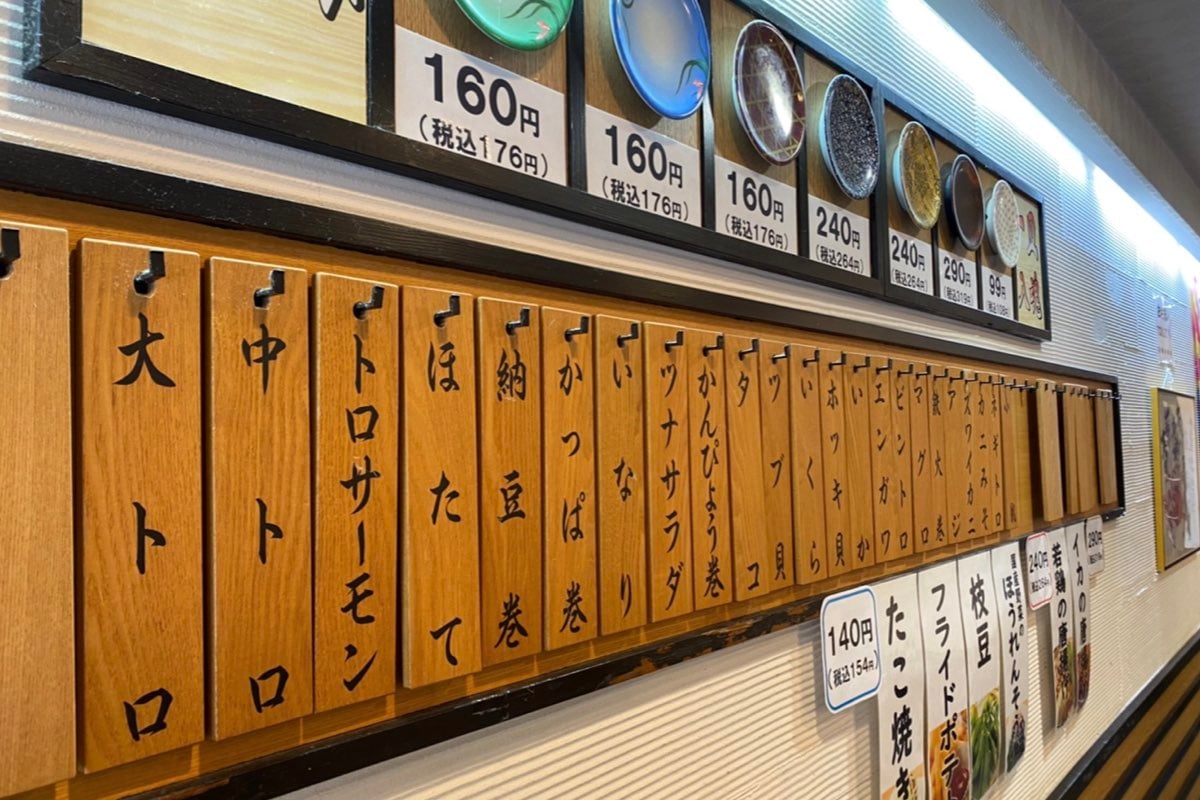 160円
(税込176円)
160円
(税込176円)
160円
(税込176円)
240円
(税込264円)
240円
(税込264円)
290円
(税込319円)
99円
(税込108円)
大トロ
中トロ
トロサーモン
ほたて
納豆巻
かっぱ巻
いなり
ツナサラダ
かんぴょう巻
タコ
ツブ貝
いくら
ホッキ貝
いか
エンガワ
ビントロ
マグロ
鉄火巻
アジ
ズワイカニ
カニみそ
ネギトロ
140円
(税込154円)
たこ焼き
フライドポテ
枝豆
国産野菜の
ほうれんそ
240円
税込264円
若鶏の唐
290円
イカの唐